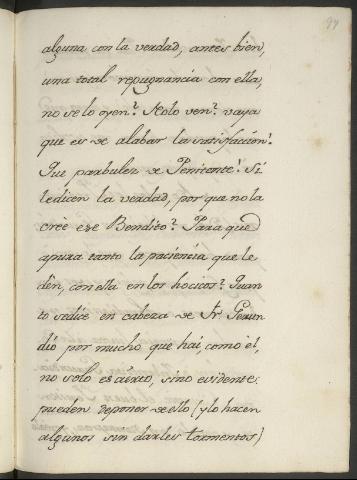 alguna con la verdad, antes bien,
una total repugnancia con ella,
no se lo oyen? Nolo ven? vaya
que es de alabar la satisfaccion!
Que parbulez de Penitente! Si
ledicen la verdad, por que no la
crèe ese Bendito? Para que
apura tanto la paciencia que le
dèn, con ella en los hocicos? Quan
to sedice en cabeza de Fr. Gerun
dio por mucho que hai, como el,
no solo es, sino evidente:
pueden deponer de ello (y lo hacen
algunos sin darles tormentos)